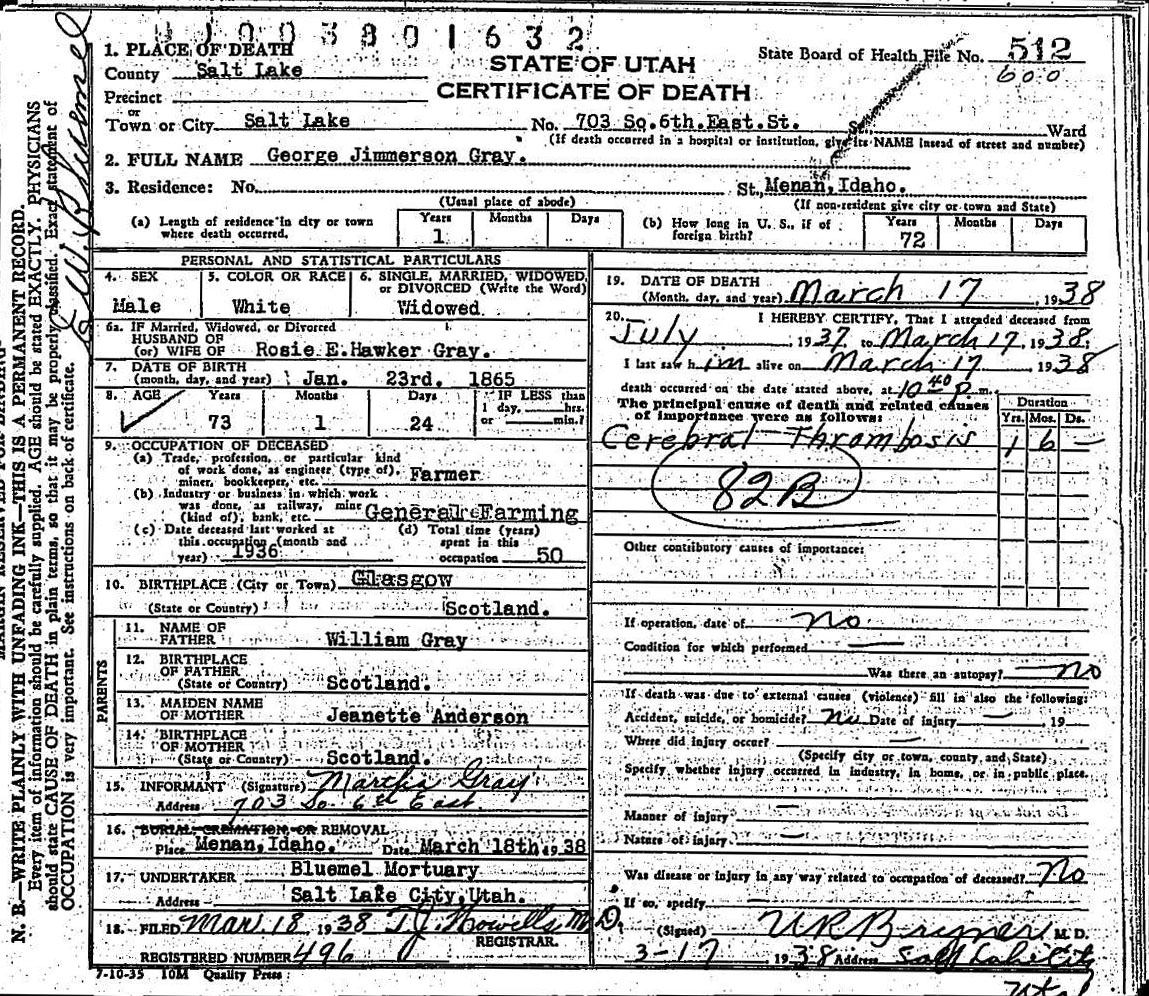 003801632
1. PLACE OF DEATH
County Salt Lake
STATE OF UTAH
CERTIFICATE OF DEATH
State Board of Health File No. 512
600
Precinct
or
Town or City Salt Lake No. 703 So.6th.East.St. Ward
(If death occurred in a hospital or institution, give its NAME insead of street and number)
2. FULL NAME George Jimmerson Gray.
3. Residence: No. St. Menan, Idaho.
(Usual place of abode) (If non-resident give city or town and State)
(a) Length of residence in city or town where death occurred. Years 1 Months Days
(b) How long in U. S., if of foreign birth? Years 72 Months Days
PERSONAL AND STATISTICAL PARTICULARS
4. SEX 5. COLOR OR RACE 6. SINGLE, MARRIED, WIDOWED, or DIVORCED (Write the Word)
Male White Widowed
6a. IF Married, Widowed, or Divorced
HUSBAND OF
(or) WIFE OF Rosie E.Hawker Gray.
7. DATE OF BIRTH
(month, day, and year) Jan. 23rd. 1865
8. AGE Years Months Days IF LESS than
1 day, hrs.
73 1 24 or min.?
9. OCCUPATION OF DECEASED
(a) Trade, profession, or particular kind
of work done, as engineer (type of).
miner, bookkeeper, etc. Farmer
(b) Industry or business in which work
was done, as railway, mine
(kind of); bank, etc. General Farming
(c) Date deceased last worked at
this occupation (month and
year) 1936
(d) Total time (years)
spent in this
occupation 50
10. BIRTHPLACE (City or Town) Glasgow
(State or Country) Scotland.
PARENTS
11. NAME OF
FATHER William Gray
12. BIRTHPLACE
OF FATHER
(State or Country) Scotland.
13. MAIDEN NAME
OF MOTHER Jeanette Anderson
14. BIRTHPLACE
OF MOTHER
(State or Country) Scotland.
15. INFORMANT (Signature) Martha Gray
Address 703 So 6th East
16. BURIAL, CREMATION, OR REMOVAL
Place Menan, Idaho. Date March 18th 1938
17. UNDERTAKER Bluemel Mortuary
Address Salt Lake City, Utah.
18. FILED Mar. 18 1938 T.J. Howells M.D.
REGISTRAR.
REGISTERED NUMBER 496
7-10-35 10M Quality Press
19. DATE OF DEATH
(Month, day, and year) March 17, 1938
20. I HEREBY CERTIFY, That I attended deceased from
July, 1937, to March 17, 1938,
I last saw him alive on March 17, 1938
death occurred on the date stated above, at 10 40 P. m.
The principal cause of death and related causes
of importance were as follows:
Duration
Yrs. Mos. Ds.
Cerebral Thrombosis 1 6 —
82B
Other contributory causes of importance:
If operation, date of no
Condition for which performed —
Was there an autopsy? no
If death was due to external causes (violence) fill in also the following:
Accident, suicide, or homicide? no Date of injury — , 19
Where did injury occur? —
(Specify city or town, county and State)
Specify whether injury occurred in industry, in home, or in public place.
Manner of injury —
Nature of injury —
Was disease or injury in any way related to occupation of deceased? No
If so, specify
(Signed) U R Bryner M. D.
3-17 1938 Address Salt Lake City
Utah
N. B.—WRITE PLAINLY WITH UNFADING INK—THIS IS A PERMANENT RECORD.
Every item of information should be carefully supplied. AGE should be stated EXACTLY. PHYSICIANS
should state CAUSE OF DEATH in plain terms, so that it may be properly classified. Exact statement of
OCCUPATION is very important. See instructions on back of certificate.